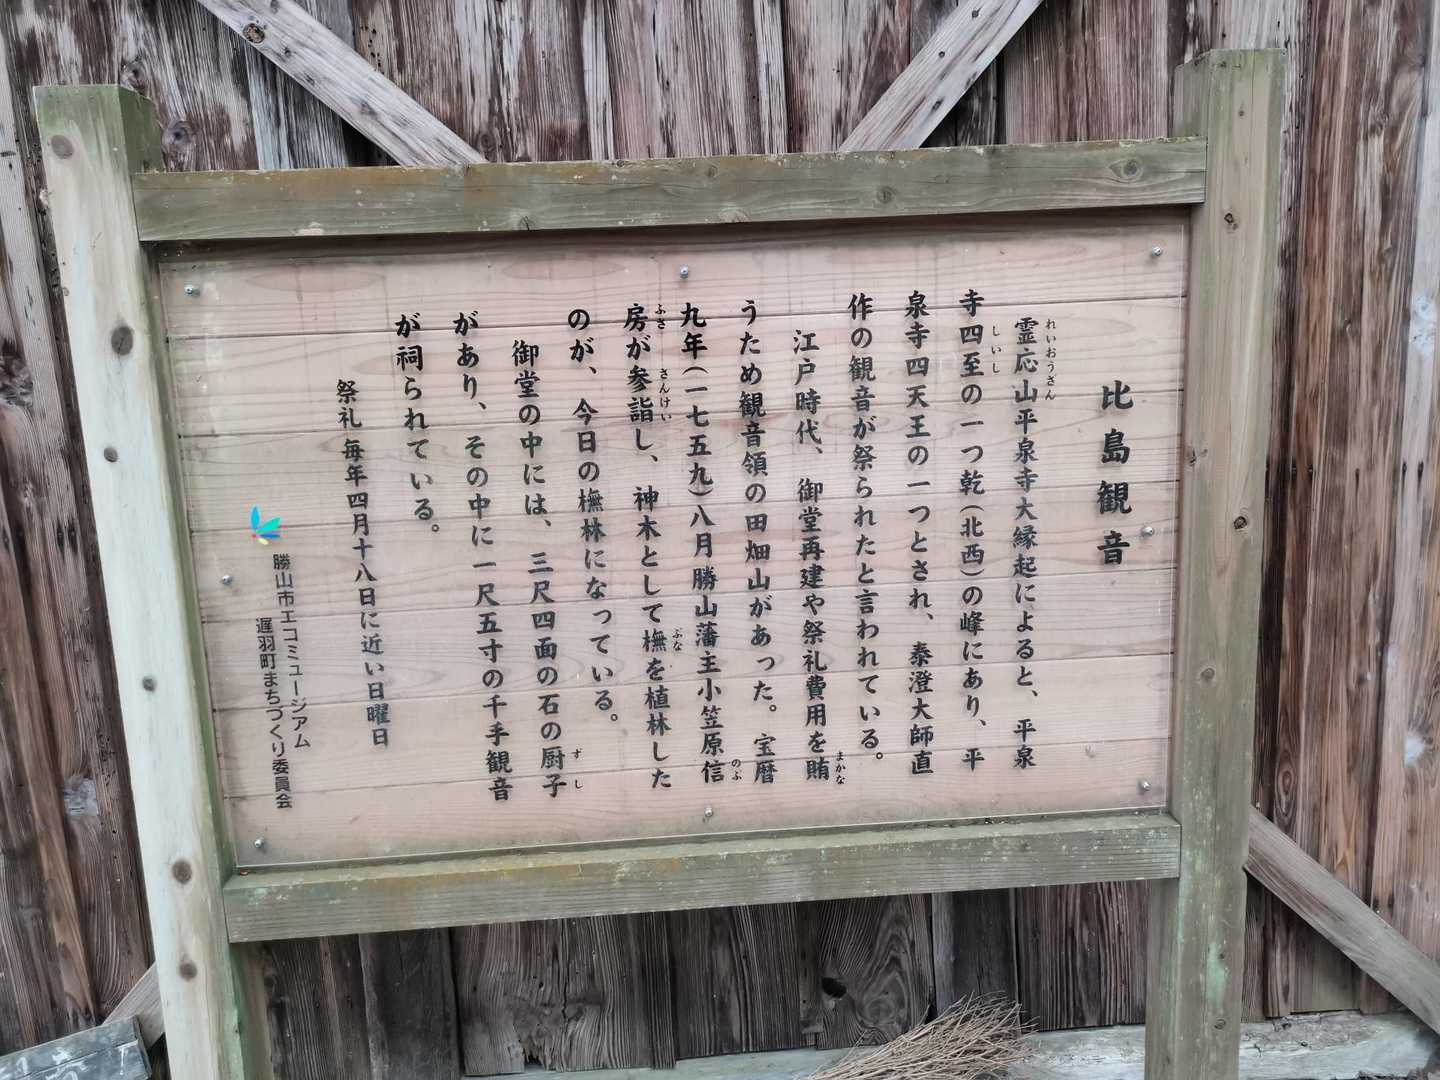 比島観音
霊応山平泉寺大縁起によると、平泉
寺四至の一つ乾(北西)の峰にあり、平
泉寺四天王の一つとされ、泰澄大師直
作の観音が祭られたと言われている。
江戸時代、御堂再建や祭礼費用を賄
うため観音領の田畑山があった。宝暦
九年(一七五九)八月勝山藩主小笠原信
房が参詣し、神木として橅を植林した
のが、今日の橅林になっている。
御堂の中には、三尺四面の石の厨子
があり、その中に一尺五寸の千手観音
が祠られている。
祭礼 毎年四月十八日に近い日曜日
勝山市エコミュージアム
遅羽町まちづくり委員会